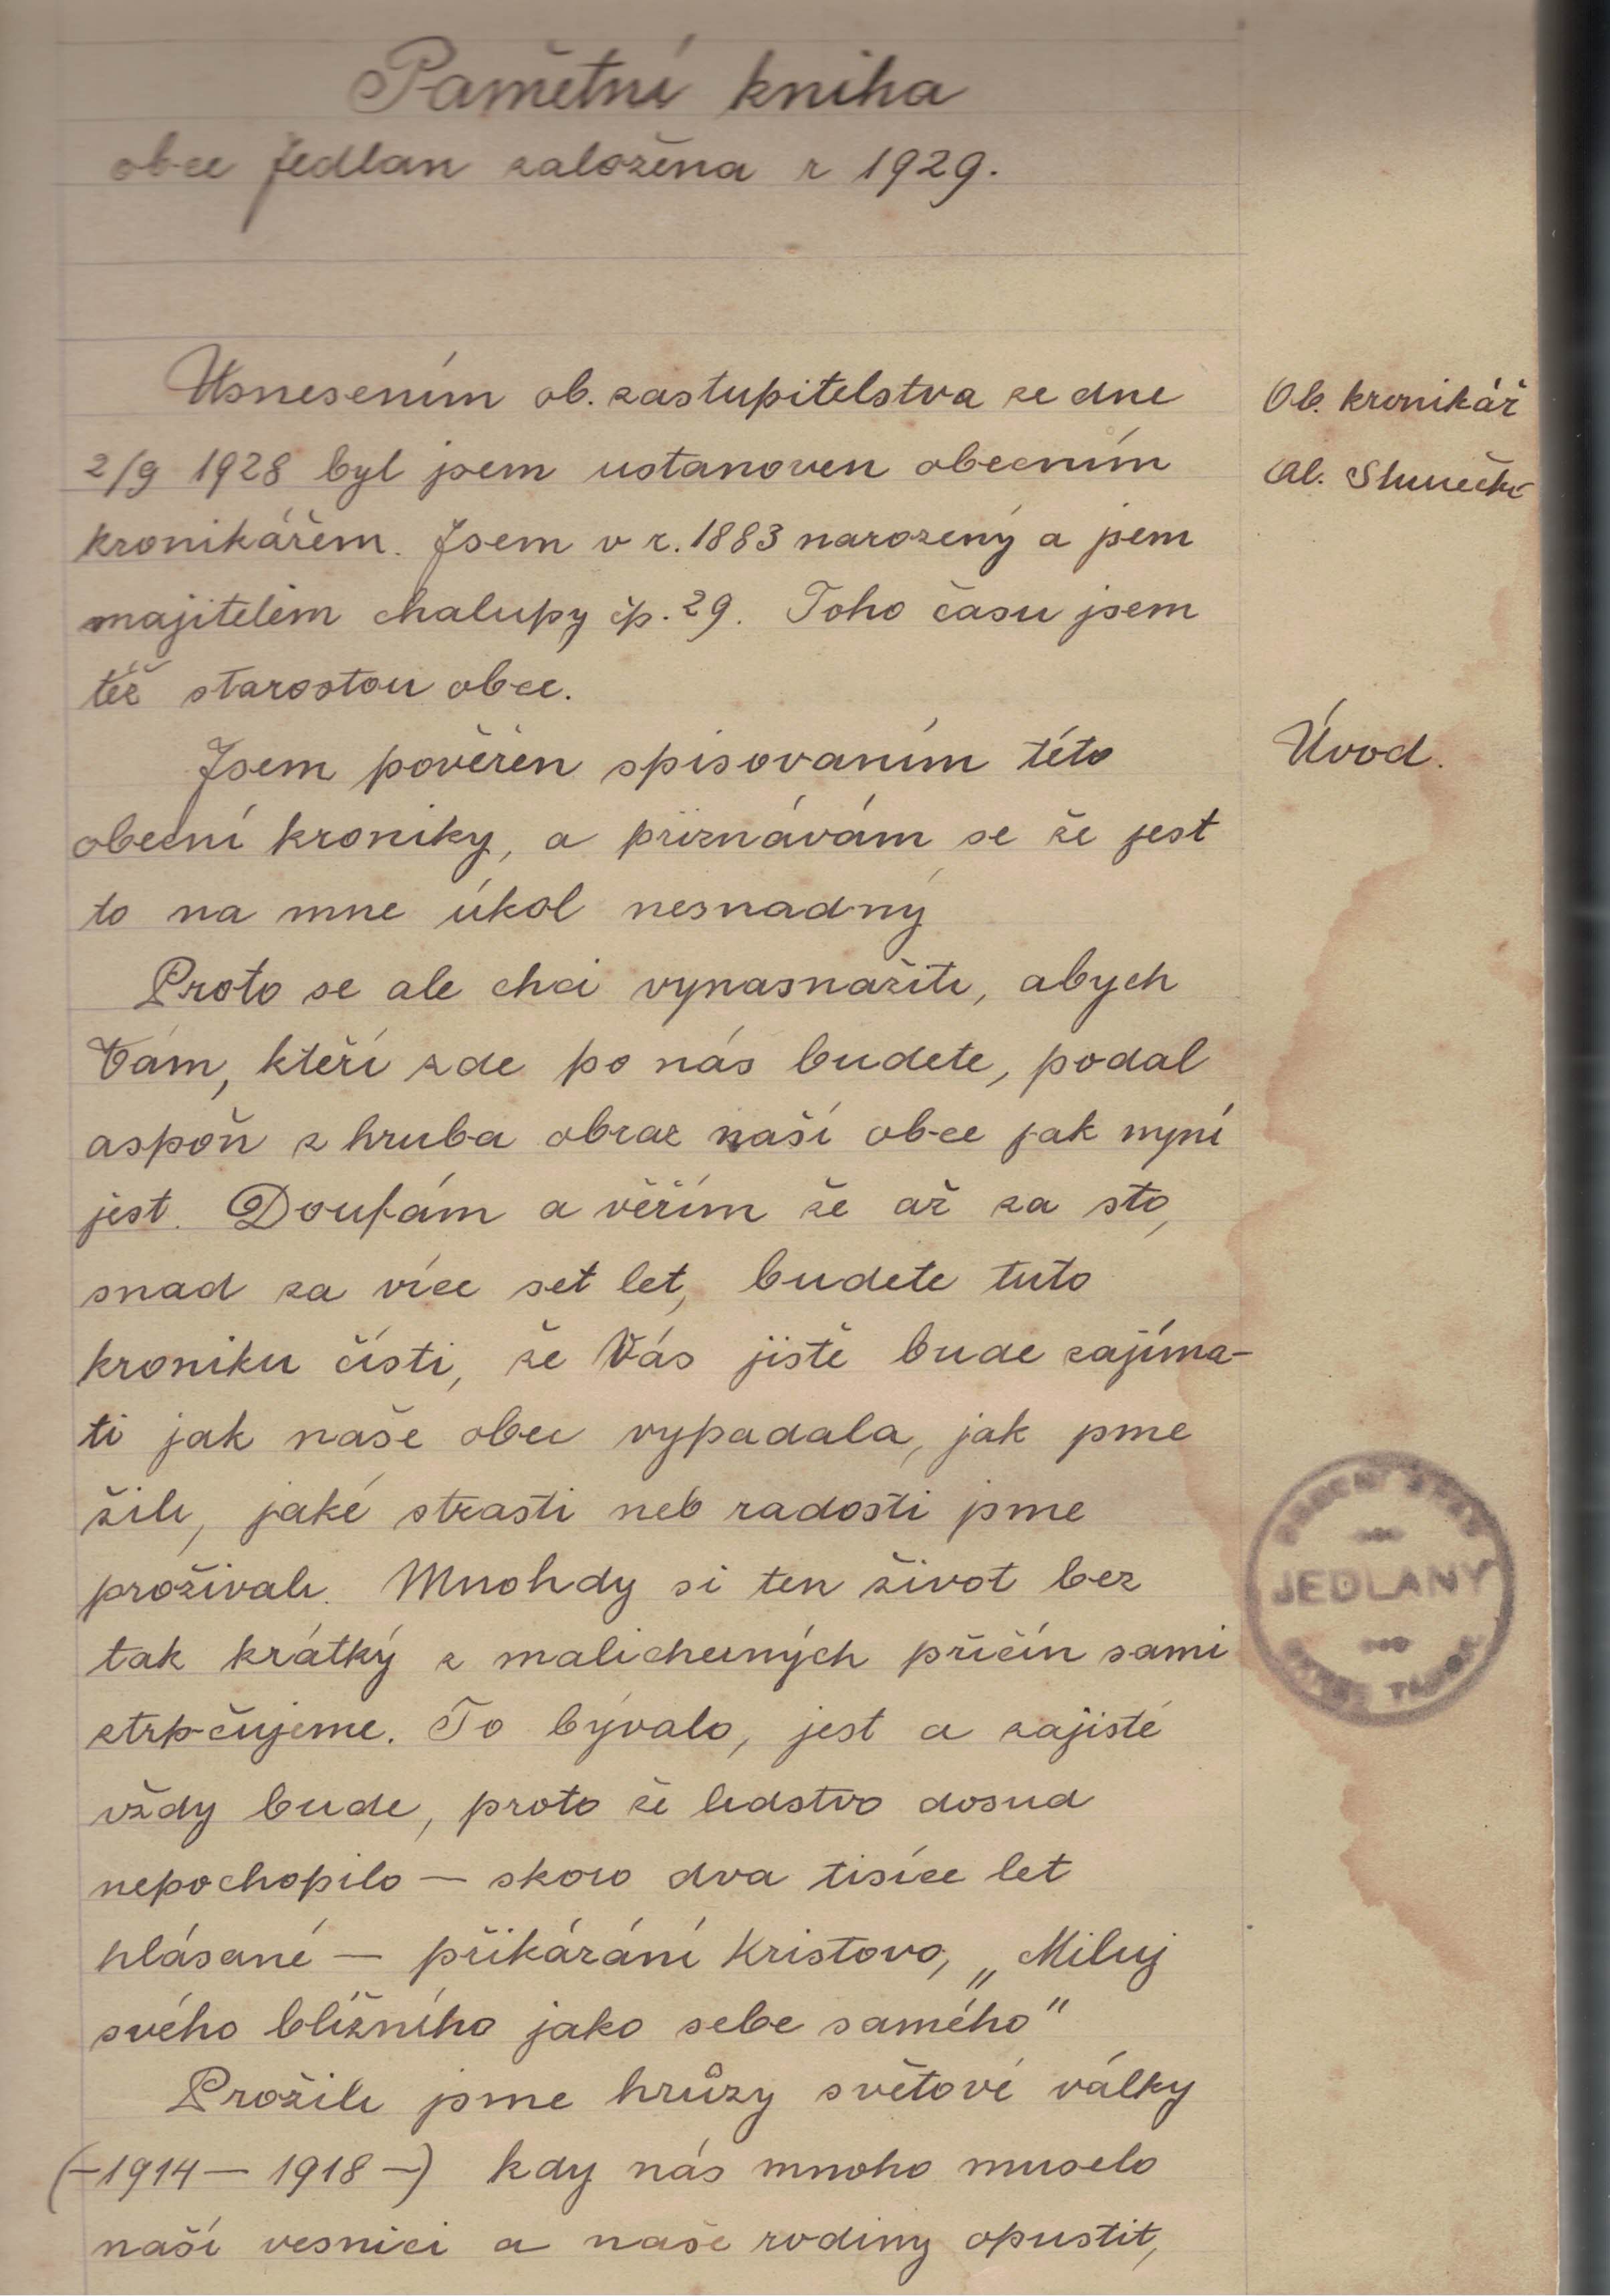 Pamětní kniha
obce Jedlan založena r 1929.
Usnesením ob. zastupitelstva ze dne
2/9 1928 byl jsem ustanoven obecním
kronikářem. Jsem v r. 1883 narozený a jsem
majitelem chalupy čp. 29. Toho času jsem
též starostou obce.
Ob. kronikář
Al.
Jsem pověřen spisovaním této
Úvod.
obecní kroniky, a přiznávám se že jest
to na mne úkol nesnadný
Proto se ale chci vynasnažiti, abych
Vám, kteří zde po nás budete, podal
aspoň z hruba obraz naší obce jak nyní
jest. Doufám a věřím že až za sto,
snad za více set let, budete tuto
kroniku čísti, že Vás jistě bude zajíma-
ti jak naše obec vypadala, jak jsme
žili, jaké strasti neb radosti jsme
prožívali. Mnohdy si ten život bez
tak krátký z malicherných příčin sami
ztrpčujeme. To bývalo, jest a zajisté
vždy bude, proto že lidstvo dosud
nepochopilo — skoro dva tisíce let
hlásané — přikázání Kristovo, „Miluj
svého bližního jako sebe samého"
Prožili jsme hrůzy světové války
(-1914 — 1918 -) kdy nás mnoho muselo
naší vesnici a naše rodiny opustit,
JEDLANY